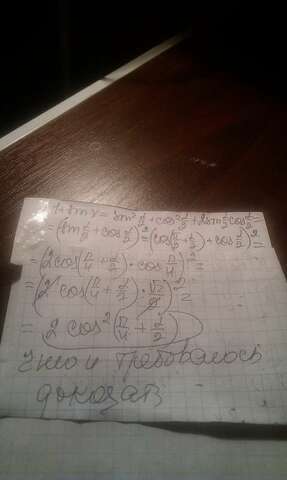 1+sin α = sin² α/2 + cos² α/2 + 2sin α/2 cos α/2 =
= (sin α/2 + cos α/2)² = (cos(π/2 + α/2) + cos α/2)² =
= (2cos(π/4 + α/2) · cos π/4)² =
= (2 cos(π/4 + α/2) · √2/2)² =
= 2 cos² (π/4 + α/2)
Что и требовалось
доказать